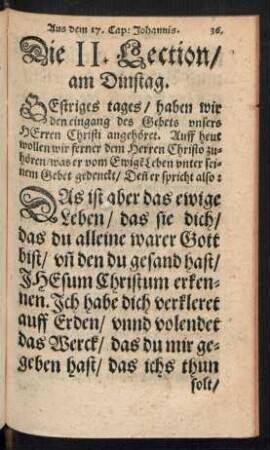 Aus dem 17. Cap: Johannis. 36.
Die II. Lection/
am Dinstag.
GEstriges tages/ haben wir
den eingang des Gebets vnsers
HErren Christi angehöret. Auff heut
wollen wir ferner dem Herren Christo zu-
hören/ was er vom EwigẽLeben vnter sei-
nem Gebet gedenckt/ Deñ er spricht also:
DAs ist aber das ewige
Leben/ das sie dich/
das du alleine warer Gott
bist/ vñ den du gesand hast/
JHEsum Christum erken-
nen. Jch habe dich verkleret
auff Erden/ vnnd volendet
das Werck/ das du mir ge-
geben hast/ das ichs thun
solt/